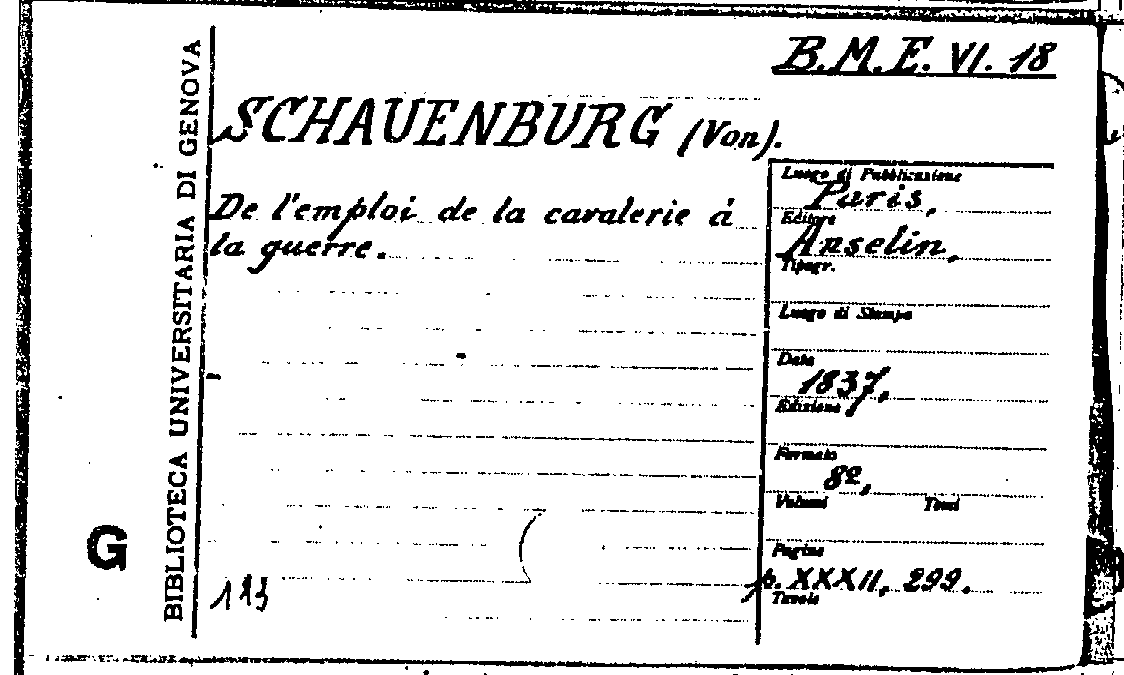 B.M.E. VI. 18
SCHAUENBURG (Von).
De l'emploi de la cavalerie à
la guerre.
Luogo di Pubblicazione
Paris,
Editore
Anselin,
Tipogr.
Luogo di Stampa
Data
1837,
Edizione
Formato
8º,
Volumi Tomi
Pagine
p. XXXII, 299.
Tavole
BIBLIOTECA UNIVERSITARIA DI GENOVA
G